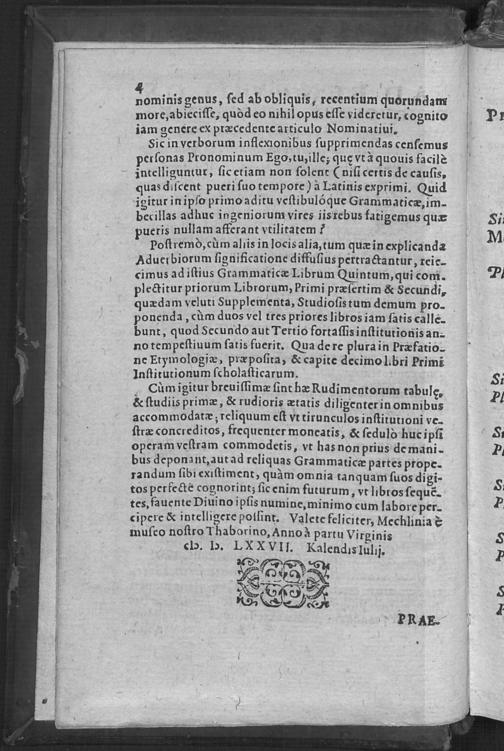 4
nominis genus, sed ab obliquis, recentium quorundam
more, abiecisse, quòd eo nihil opus esse videretur, cognito
iam genere ex præcedente articulo Nominatiui.
Sic in verborum inflexionibus supprimendas censemus
personas Pronominum Ego, tu, ille; quę vt à quouis facilè
intelliguntur, sic etiam non solent (nisi certis de causis,
quas discent pueri suo tempore) à Latinis exprimi. Quid
igitur in ipso primo aditu vestibulóque Grammaticæ, im-
becillas adhuc ingeniorum vires iis rebus fatigemus quæ
pueris nullam afferant vtilitatem?
Postremò, cùm aliis in locis alia, tum quæ in explicanda
Aduerbiorum significatione diffusius pertractantur, reie-
cimus ad istius Grammaticæ Librum Quintum, qui com-
plectitur priorum Librorum, Primi præsertim & Secundi,
quædam veluti Supplementa, Studiosis tum demum pro-
ponenda, cùm duos vel tres priores libros iam satis calle-
bunt, quod Secundo aut Tertio fortassis institutionis an-
no tempestiuum satis fuerit. Qua de re plura in Præfatio-
ne Etymologiæ, præposita, & capite decimo libri Primi
Institutionum scholasticarum.
Cùm igitur breuissimæ sint hæ Rudimentorum tabulę,
& studiis primæ, & rudioris ætatis diligenter in omnibus
accommodatæ; reliquum est vt tirunculos institutioni ve-
stræ concreditos, frequenter moneatis, & sedulò huc ipsi
operam vestram commodetis, vt has non prius de mani-
bus deponant, aut ad reliquas Grammaticæ partes prope-
randum sibi existiment, quàm omnia tanquam suos digi-
tos perfectè cognorint; sic enim futurum, vt libros sequē-
tes, fauente Diuino ipsis numine, minimo cum labore per-
cipere & intelligere possint. Valete feliciter, Mechlinia è
museo nostro Thaborino, Anno à partu Virginis
cIↄ. Iↄ. LXXVII. Kalendis Iulij.
PRAE-